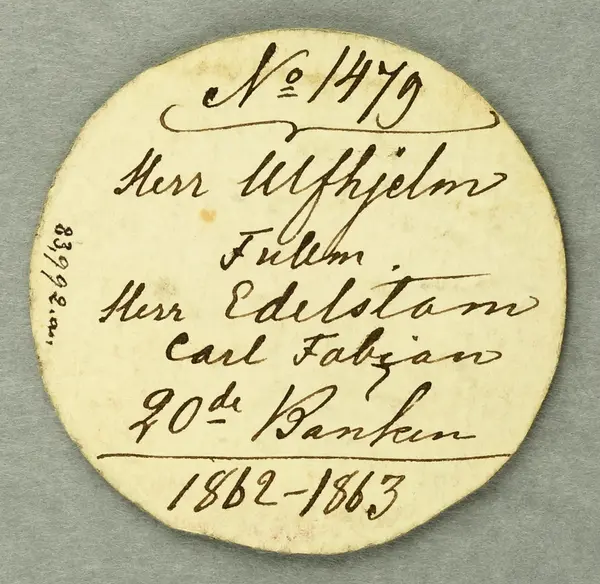 No 1479
Herr Ulfhjelm
Fullm.
Herr Edelstam
Carl Fabian
20de Banken
1862-1863
83992.a.